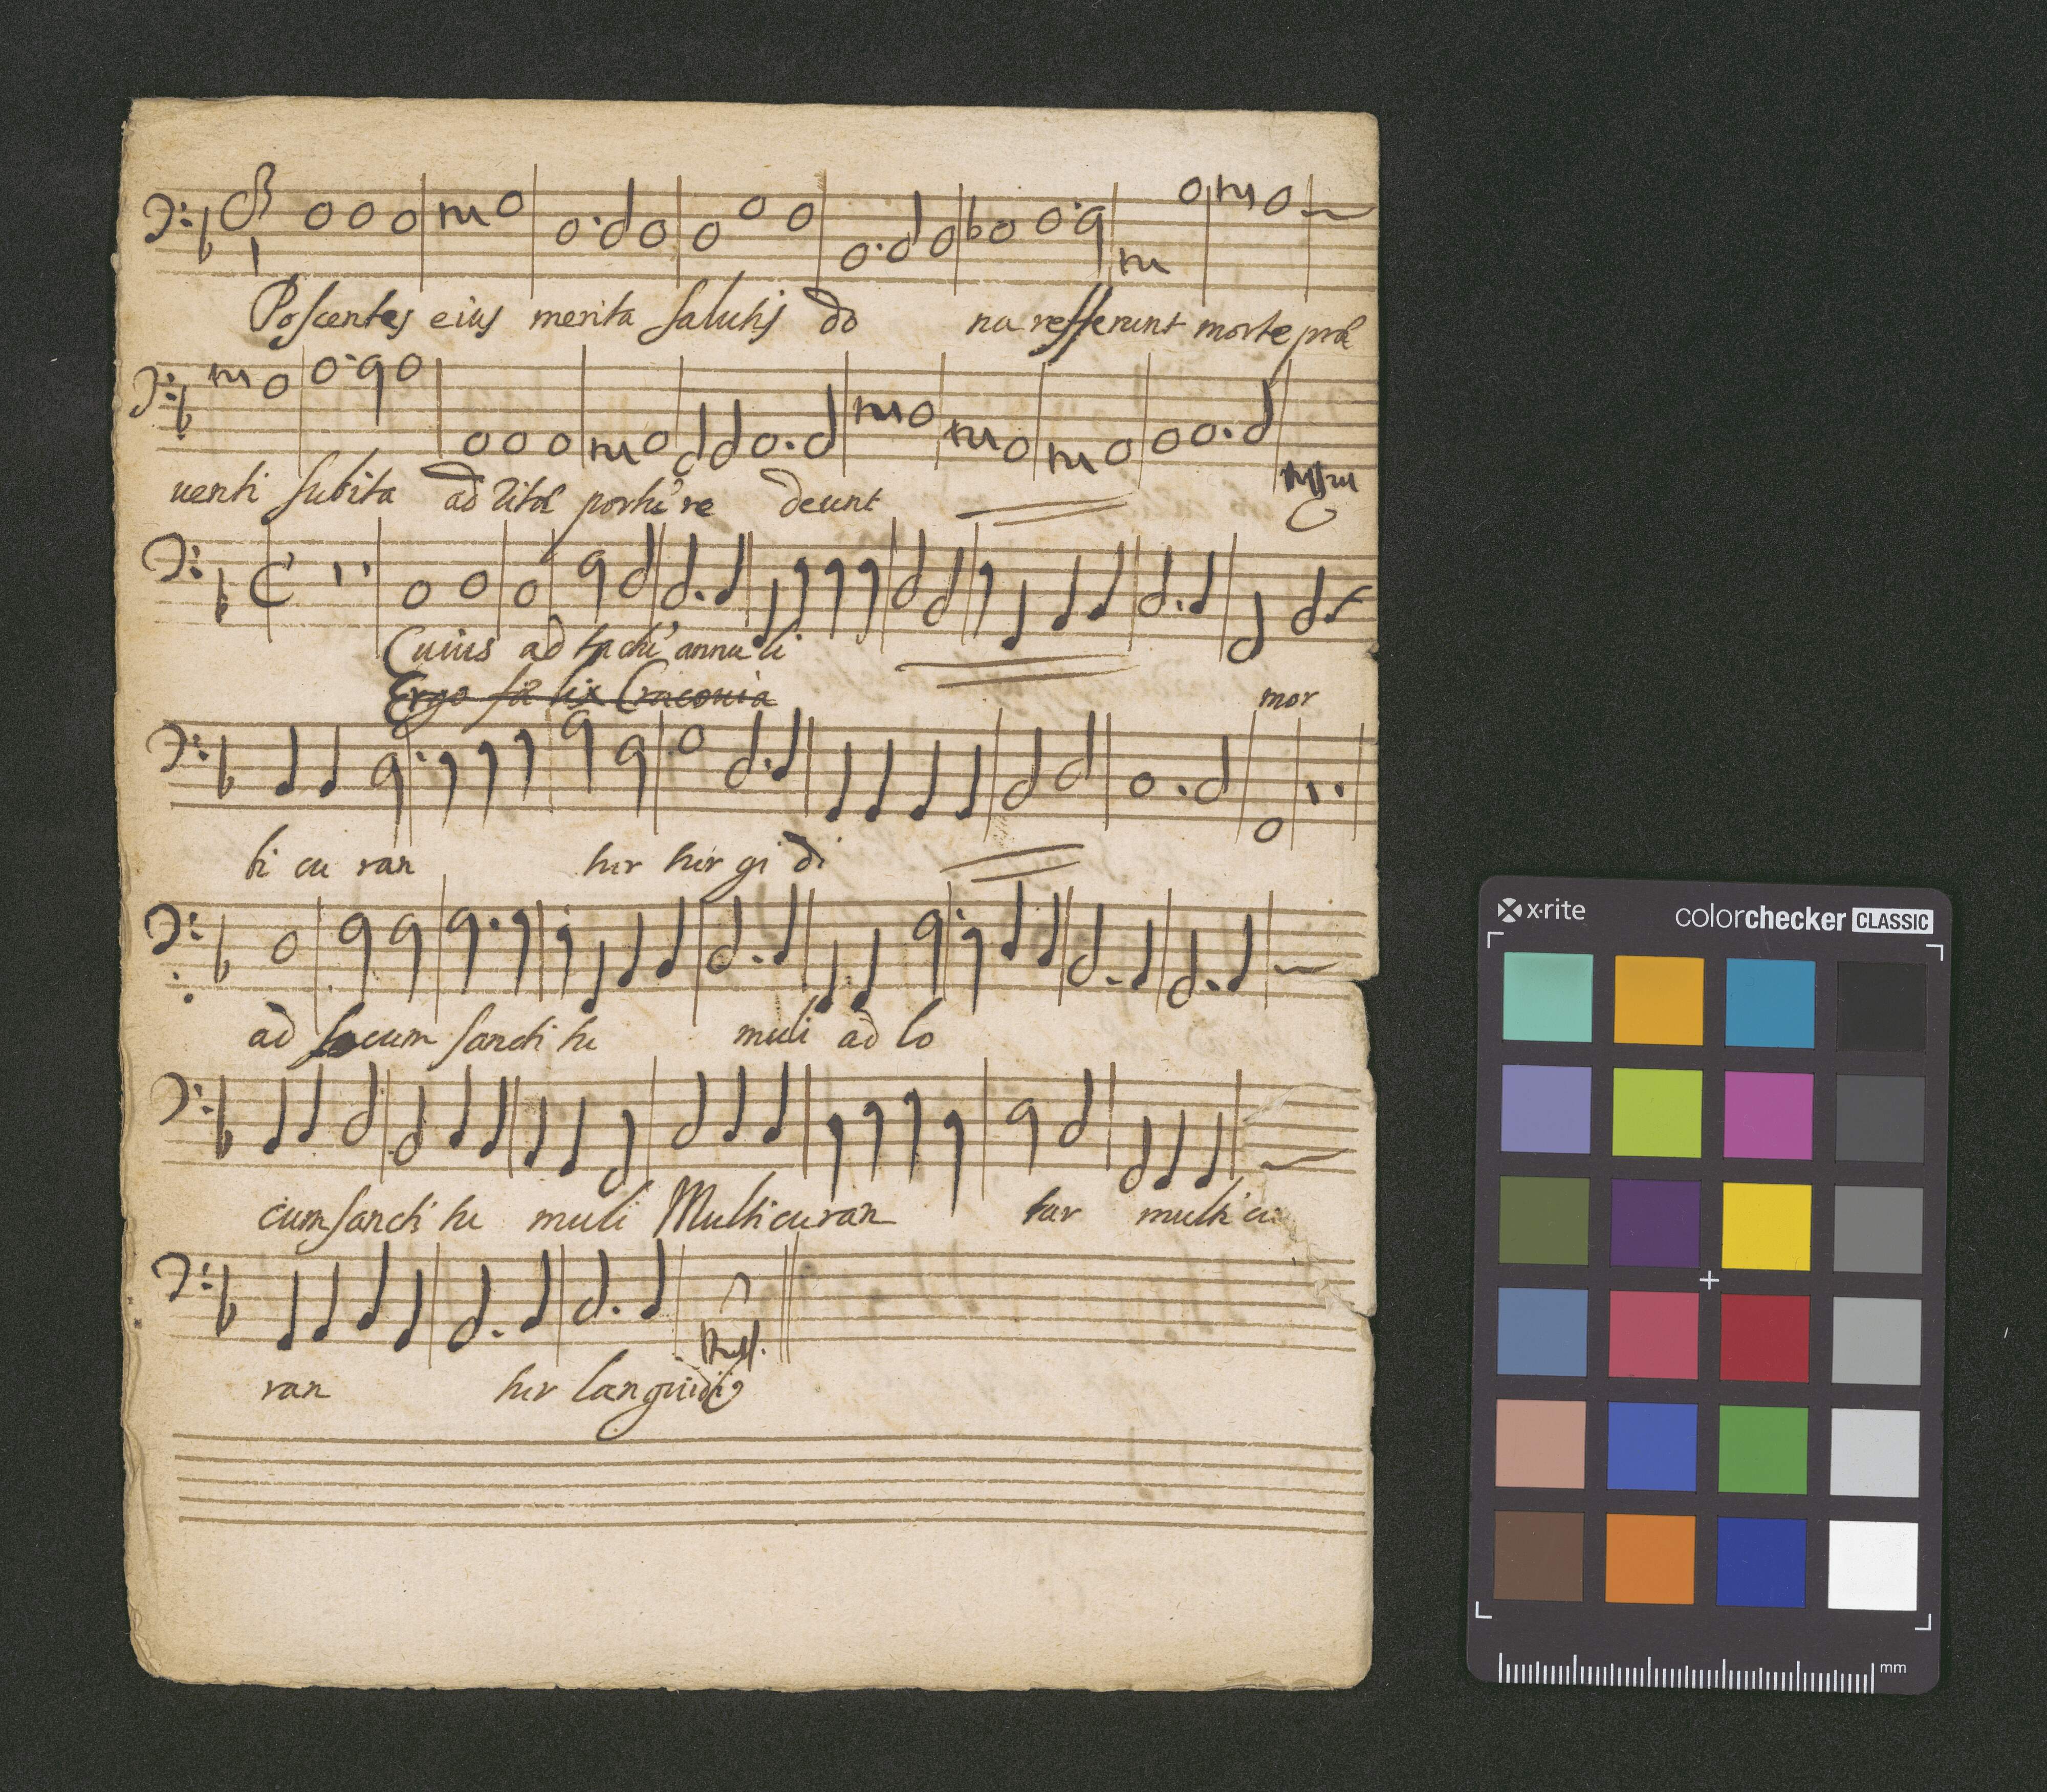 Poscentes eius merita salutis do na refferunt morte prae
uenti subita ad vitae porti re deunt
Cuius ad tacti annu li
Ergo fae lix Craconia
mor
bi cu ran tur tur gi di
ad locum sancti tu muli ad lo
cum sancti tu muli Multi curan tur multi cu
ran tur languidi
x·rite colorchecker CLASSIC
mm